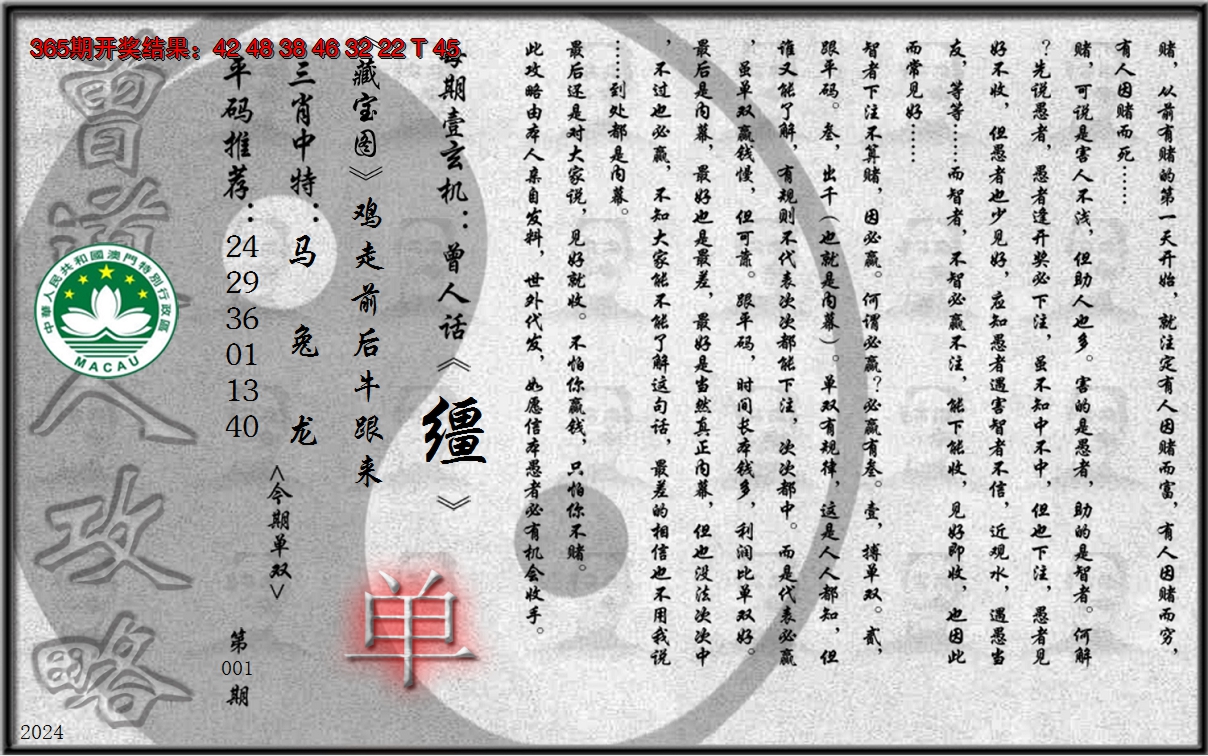 365期开奖结果：42 48 38 46 32 22 T 45
赌，从前有赌的第一天开始，就注定有人因赌而富，有人因赌而穷，
有人因赌而死……
赌，可说是害人不浅，但助人也多。害的是愚者，助的是智者。何解
？先说愚者，愚者逢开奖必下注，虽不知中不中，但也下注，愚者见
好不收，但愚者也少见好，应知愚者遇害智者不信，近观水，遇愚当
友，等等……而智者，不智必赢不注，能下能收，见好即收，也因此
而常见好……
智者下注不算赌，因必赢。何谓必赢？必赢有叁。壹，搏单双。贰，
跟平码。叁，出千（也就是内幕）。单双有规律，这是人人都知，但
谁又能了解，有规则不代表次次都能下注，次次都中。而是代表必赢
，虽单双赢钱慢，但可靠。跟平码，时间长本钱多，利润比单双好。
最后是内幕，最好也是最差，最好是当然真正内幕，但也没法次次中
，不过也必赢，不知大家能不能了解这句话，最差的相信也不用我说
……到处都是内幕。
最后还是对大家说，见好就收。不怕你赢钱，只怕你不赌。
此攻略由本人亲自发料，世外代发，如愿信本愚者必有机会收手。
每期壹玄机：曾人话《缰》
《藏宝图》鸡走前后牛跟来
单
三肖中特：马 兔 龙
<今期单双>
平码推荐：24 29 36 01 13 40
第001期
曾道人攻略
中華人民共和國澳門特別行政區
MACAU
2024